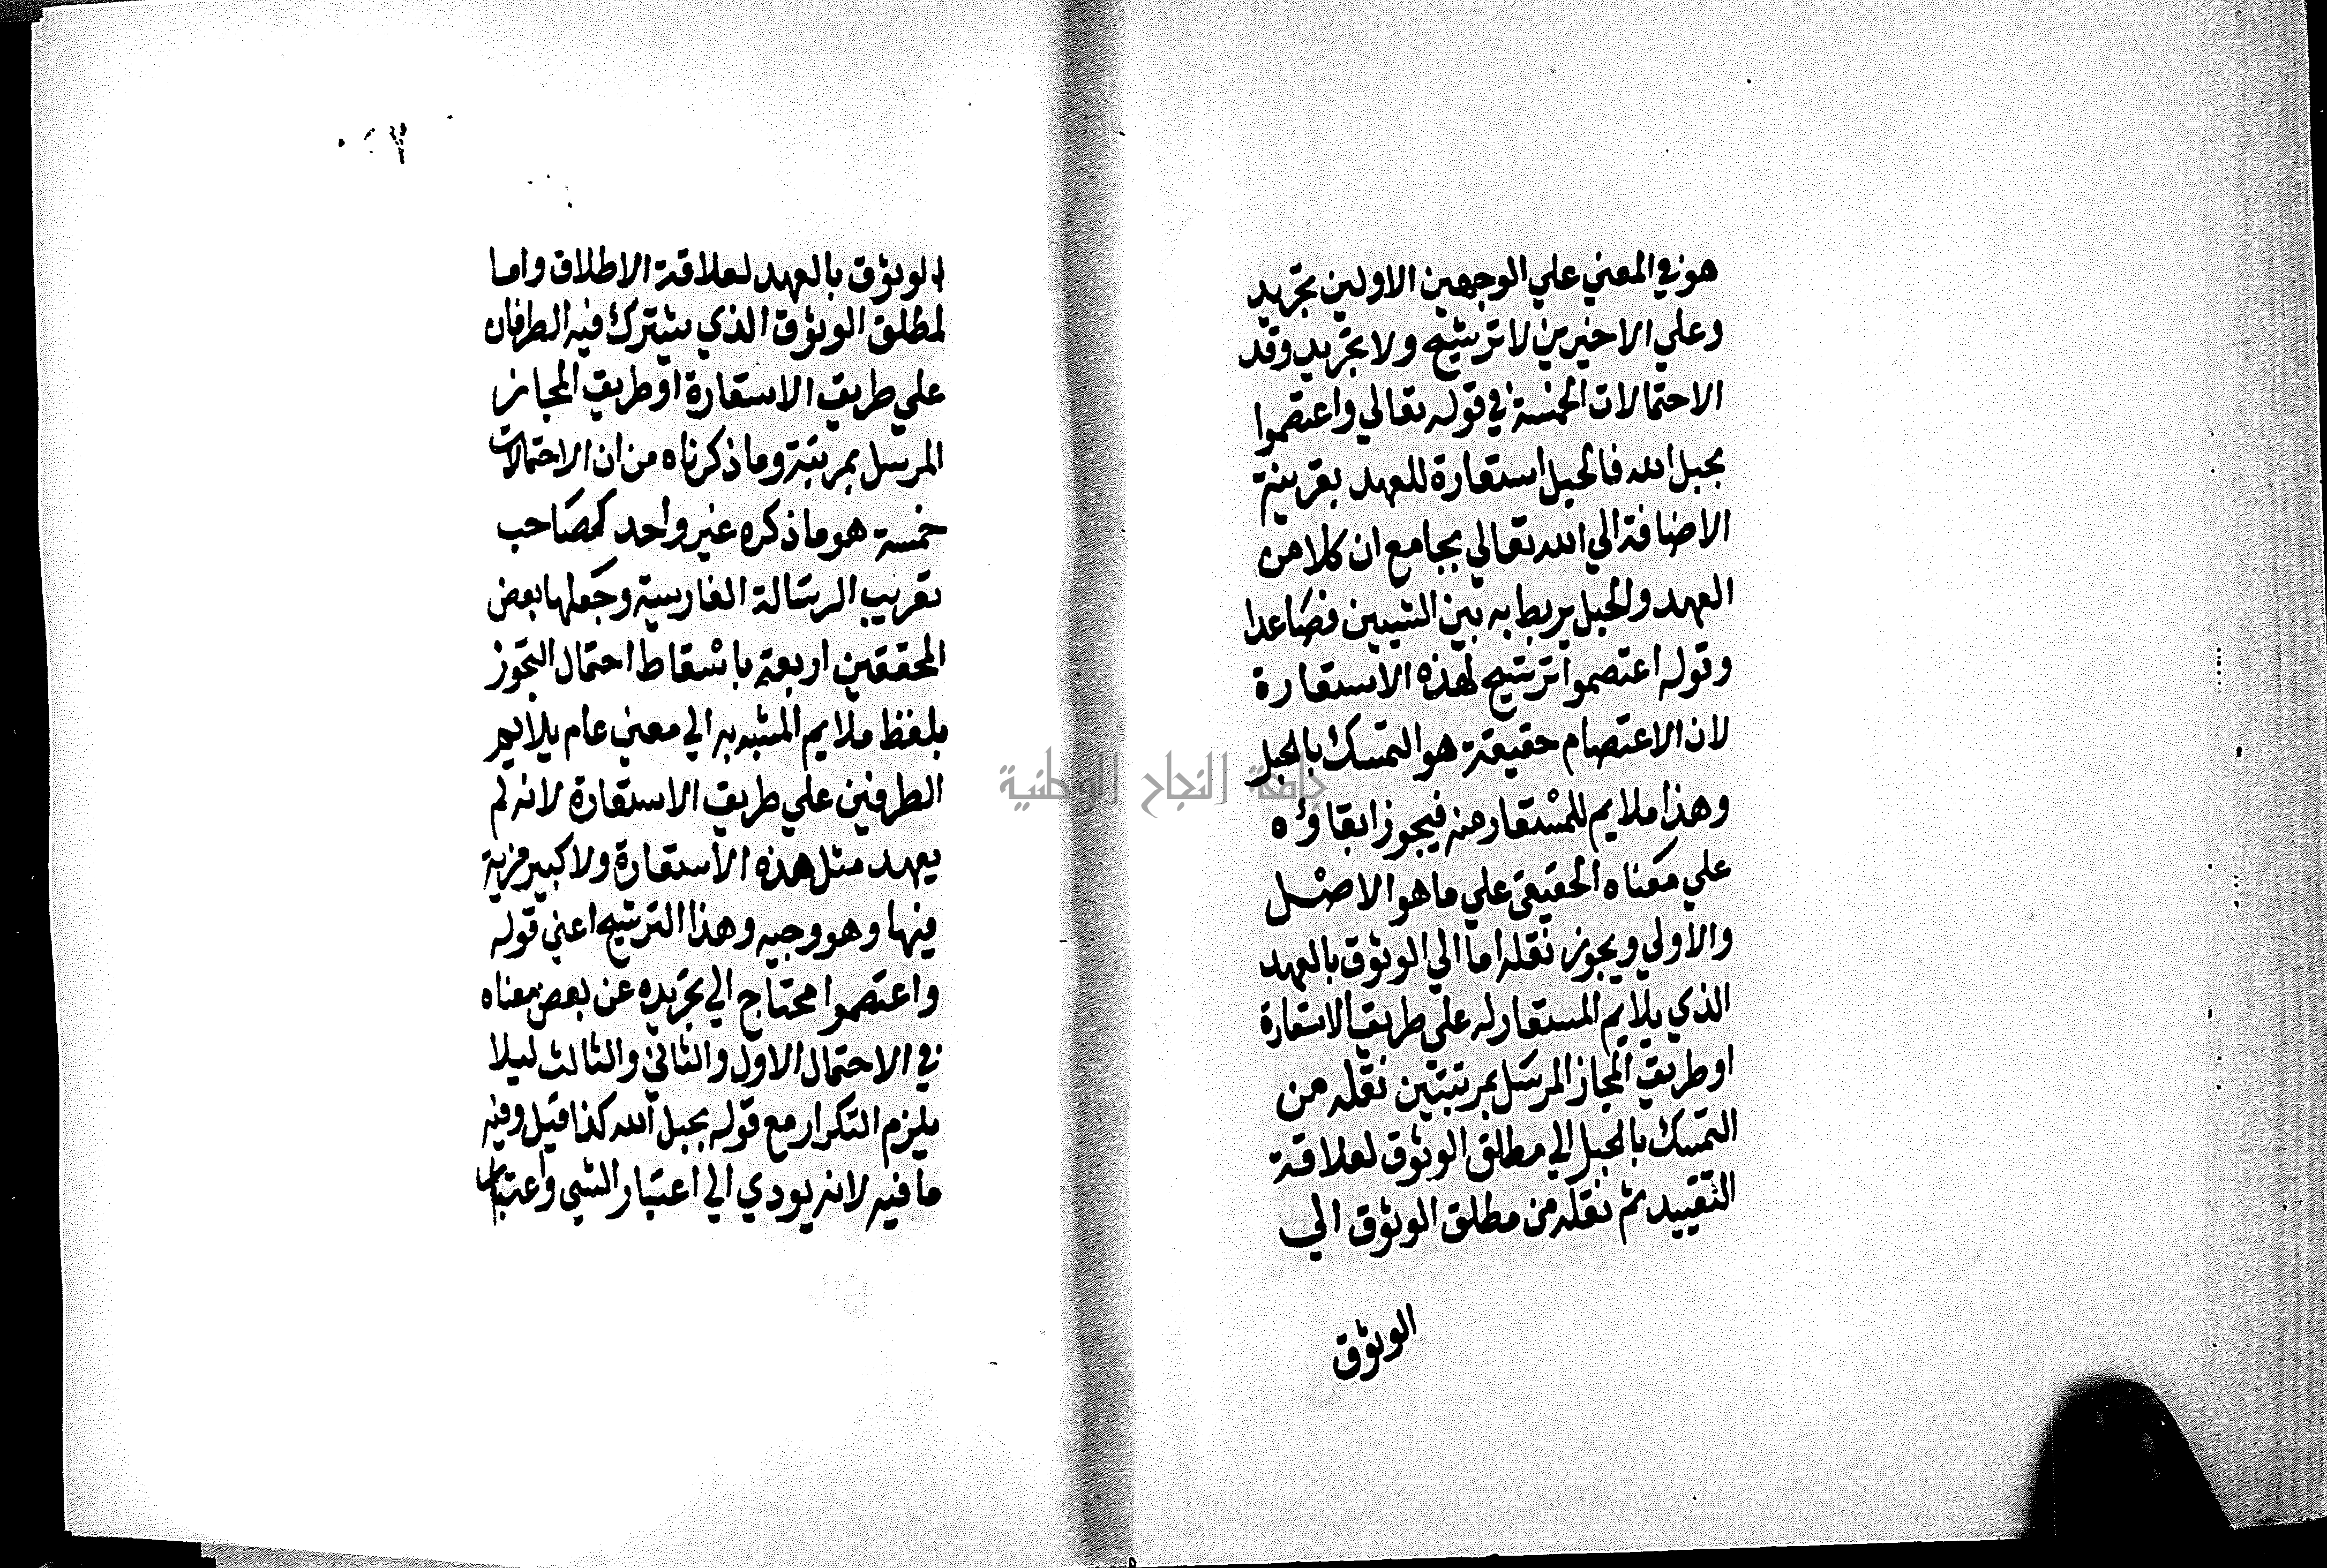 هو في المعني علي الوجهين الاولين تجريد
وعلي الاخيرين لا ترشيح ولا تجريد وقد
الاحتمالات الخمسة في قوله تعالي واعتصموا
بحبل الله فالحبل استعارة للعهد بقرينة
الاضافة الي الله تعالي بجامع ان كلا من
العهد والحبل يربط به بين الشيين فصاعدا
وقوله اعتصموا ترشيح لهذه الاستعارة
لان الاعتصام حقيقة هو التمسك بالحبل
وهذا ملايم للمستعار منه فيجوز ابقاؤه
علي معناه الحقيقي علي ما هو الاصل
والاولي ويجوز نقله اما الي الوثوق بالعهد
الذي يلايم المستعار له علي طريق الاستعارة
او طريق المجاز المرسل بمرتبتين نقله من
التمسك بالحبل الي مطلق الوثوق لعلاقة
التقييد ثم نقله من مطلق الوثوق الي
الوثوق
الوثوق بالعهد لعلاقة الاطلاق واما
لمطلق الوثوق الذي يشترك فيه الطرفان
علي طريق الاستعارة او طريق المجاز
المرسل بمرتبة وما ذكرناه من ان الاحتمالات
خمسة هو ما ذكره غير واحد كصاحب
تعريب الرسالة الفارسية وجعلها بعض
المحققين اربعة باسقاط احتمال التجوز
بلفظ ملايم المشبه به الي معني عام يلايم
الطرفين علي طريق الاستعارة لانه لم
يعهد مثل هذه الاستعارة ولا كبير مزية
فيها وهو وجيه وهذا الترشيح اعني قوله
واعتصموا محتاج الي تجريده عن بعض معناه
في الاحتمال الاول والثاني والثالث ليلا
يلزم التكرار مع قوله بحبل الله كذا قيل وفيه
ما فيه لانه يودي الي اعتبار الشي واعتبار
جامعة النجاح الوطنية